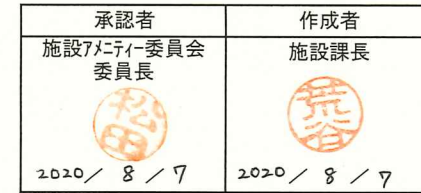 承認者
作成者
施設ｱﾒﾆﾃｨｰ委員会
委員長
施設課長
松田
荒谷
2020／8／7
2020／8／7